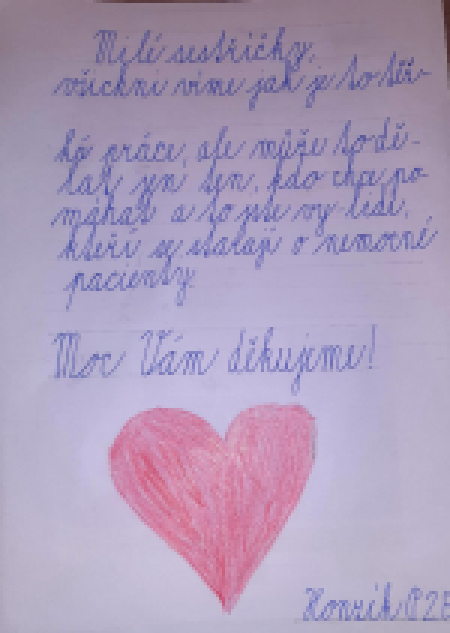 Milé sestřičky,
všichni víme jak je to těž-
ká práce, ale může to dě-
lat jen ten, kdo chce po-
máhat a to jste vy lidi,
kteří se starají o nemocné
pacienty.
Moc Vám děkujeme!
Honzík